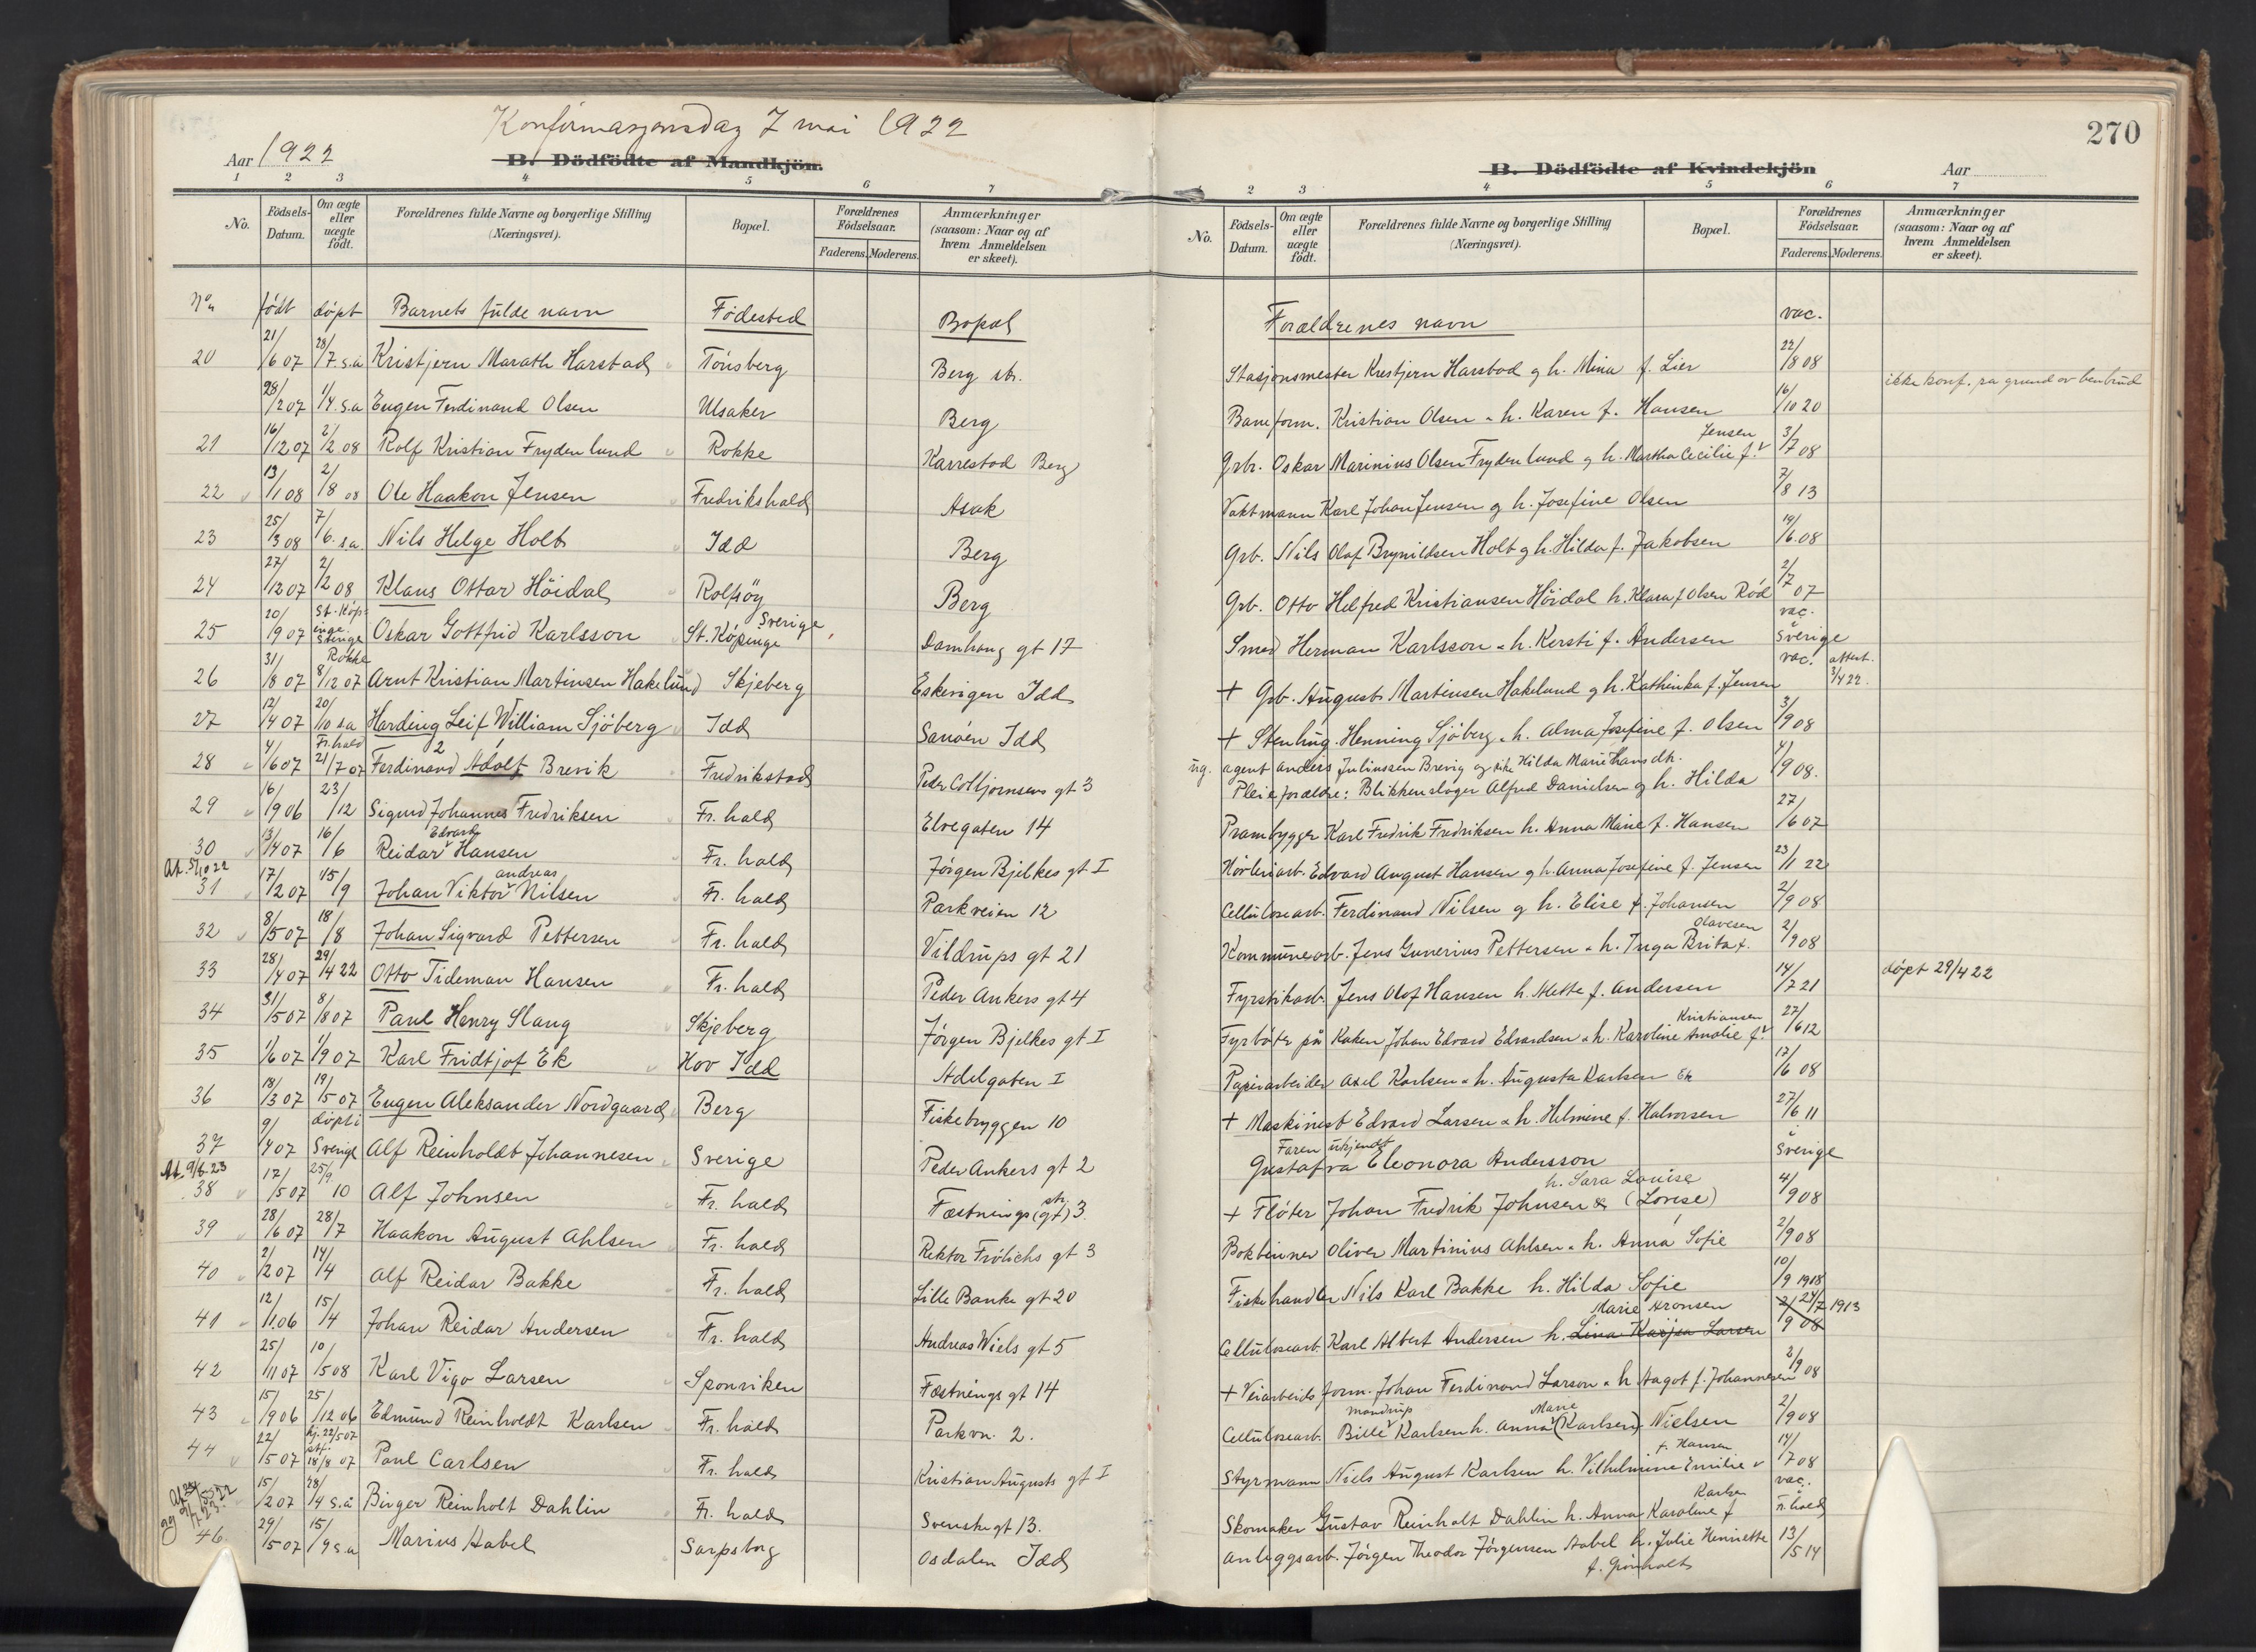 Konfirmasjonsdag 7 mai 1922
270
Aar 1922 B. Dödfödte af Mandkjön.
B. Dödfödte af Kvindekjön Aar
1 2 3 4 5 6 7
2 3 4 5 6 7
No. Födsels-Datum. Om ægte eller uægte födt. Forældrenes fulde Navne og borgerlige Stilling (Næringsvei). Bopæl. Forældrenes Födselsaar. Faderens. Moderens. Anmærkninger (saasom: Naar og af hvem Anmeldelsen er skeet).
No. Födsels-Datum. Om ægte eller uægte födt. Forældrenes fulde Navne og borgerlige Stilling (Næringsvei). Bopæl. Forældrenes Födselsaar. Faderens. Moderens. Anmærkninger (saasom: Naar og af hvem Anmeldelsen er skeet).
No født døpt Barnets fulde navn Fødested Bopæl Forældrenes navn vac.
20 21/6 07 28/7. s.a Kristjern Marath Harstad Tønsberg Berg st. Stasjonsmester Kristjern Harstad g h. Mina f. Lier 22/8 08
28/2 07 1/4. s.a Eugen Ferdinand Olsen Ulsaker Berg Baneform. Kristian Olsen " h. Karen f. Hansen 16/10 20 ikke konf. pa grund av benbrud
21 16/12 07 2/2 08 Rolf Kristian Frydenlund Rokke Karrestad Berg Grbr. Oskar Marinius Olsen Frydenlund g h. Martha Cecilie f. Jensen 3/7 08
22 13/1 08 2/8 08 Ole Haakon Jensen Fredrikshald Asak Vaktmann Karl Johan Jensen g h. Josefine Olsen 7/8 13
23 25/3 08 7/6. s.a. Nils Helge Holt Idd Berg Grb. Nils Olaf Brynildsen Holt g h. Hilda f. Jakobsen 14/6. 08
24 27/12 07 2/2 08 Klaus Ottar Höidal Rolfsöy Berg Grb. Otto Helfred Kristiansen Höidal h. Klara f Olsen Rød 2/7 07
25 20/9 07 St. Köpinge Sverige Oskar Gottfrid Karlsson St. Köpinge Sverige Damhaug gt 17 Smed Herman Karlsson " h. Kersti f. Andersen vac. Sverige
26 31/8 07 Rokke 8/12 07 Arnt Kristian Martinsen Hakelund Skjeberg Eskevigen Idd + Grb. August Martinsen Hakelund g h. Kathinka f. Jensen vac. attest. 3/4 22.
27 12/4 07 20/10 sa Harding Leif William Sjöberg Idd Sanöen Idd + Stenhug. Henning Sjöberg " h. Alma Josefine f. Olsen 3/9 08
28 4/6 07 Fr.hald 21/7 07 Ferdinand Adolf Brevik Fredrikstad Peder Colbjørnsens gt 3 ug. agent Anders Juliussen Brevig og pike Hilda Marie Hansdtr. 4/9 08.
Pleieforældre: Blikkenslager Alfred Danielsen g h. Hilda
29 16/9 06 23/12 Sigurd Johannes Fredriksen Fr. hald Elvegaten 14 Prambygger Karl Fredrik Fredriksen h. Anna Marie f. Hansen 27/6 07
30 13/4 07 16/6 Reidar Edvard Hansen Fr. hald Jørgen Bjelkes gt I Hörleriarb. Edvard August Hansen g h. Anna Josefine f. Jensen 23/11 22
At. 5/10 22
31 17/2 07 15/9 Johan Viktor Andreas Nilsen Fr. hald Parkveien 12 Cellulosearb. Ferdinand Nilsen g h. Elise f. Johansen 2/9 08
32 8/5 07 18/8 Johan Sigvard Pettersen Fr. hald Vildrups gt 21 Kommunearb. Jens Gunerius Pettersen " h. Inga Brita f. Olavesen 2/9 08
33 28/4 07 29/4 22 Otto Tideman Hansen Fr. hald Peder Ankers gt 4 Fyrstikarb. Jens Olaf Hansen h. Mette f. Andersen 14/7 21 døpt 29/4 22
34 31/5 07 8/8 07 Paul Henry Slang Skjeberg Jørgen Bjelkes gt I Fyrbøter på Kaken Johan Edvard Edvardsen " h. Karoline Amalie f. Kristiansen 27/6 12
35 1/6 07 1/9 07 Karl Fridtjof Ek Hov Idd Adelgaten I Papirarbeider Axel Karlsen " h. Augusta Karlsen Ek 17/6 08
36 18/3 07 19/5 07 Eugen Aleksander Nordgaard Berg Fiskebryggen 10 + Maskinist Edvard Larsen " h. Helmine f. Halvorsen 27/6 11
37 9/4 07 døpt i Sverige Alf Reinholdt Johannesen Sverige Peder Ankers gt 2 Faren ukjendt Gustafva Eleonora Andersson Sverige
At. 9/6. 23
38 17/5 07 25/9 10 Alf Johnsen Fr. hald Fæstnings (gt) str. 3. + Fløter Johan Fredrik Johnsen & h. Sara Louise (Lovise) 4/9 08
39 28/6 07 28/7 Haakon August Ahlsen Fr. hald Rektor Frölichs gt 3 Bokbinner Oliver Martinius Ahlsen " h. Anna Sofie 2/9 08
40 2/2 07 14/4 Alf Reidar Bakke Fr. hald Lille Banke gt 20 Fiskehandler Nils Karl Bakke h. Hilda Sofie 10/9 1918
41 12/1 06 15/4 Johan Reidar Andersen Fr. hald Andreas Wiels gt 5 Cellulosearb. Karl Albert Andersen h. Lina Kajsa Larsen Marie Aronsen 2/9 08 24/7 1913
42 25/11 07 10/5 08 Karl Vigo Larsen Sponviken Fæstnings gt 14 + Veiarbeidsform. Johan Ferdinand Larson " h Aagot f. Johannesen 2/9 08
43 15/9 06 25/12 06 Edmund Reinholdt Karlsen Fr. hald Parkvn. 2. Cellulosearb. Bille Mandrup Karlsen h. Anna Marie (Karlsen) Nielsen 2/9 08
44 22/5 07 hj. 22/5 07 stf. 18/8 07 Paul Carlsen Fr. hald Kristian Augusts gt I Styrmann Niels August Karlsen h. Vilhelmine Emilie f. Hansen 14/7 08
15/2 07 28/4 s.å Birger Reinholt Dahlin Fr. hald Svenske gt 13. Skomaker Gustav Reinholt Dahlin h. Anna Karoline f Karlsen vac. Fr. hald
46. 29/5 07 15/9 s.a Marius Aabel Sarpsborg Osdalen Idd Anleggsarb. Jörgen Theodor Jörgensen Aabel h. Julie Henriette f. Grönholt 13/5 14